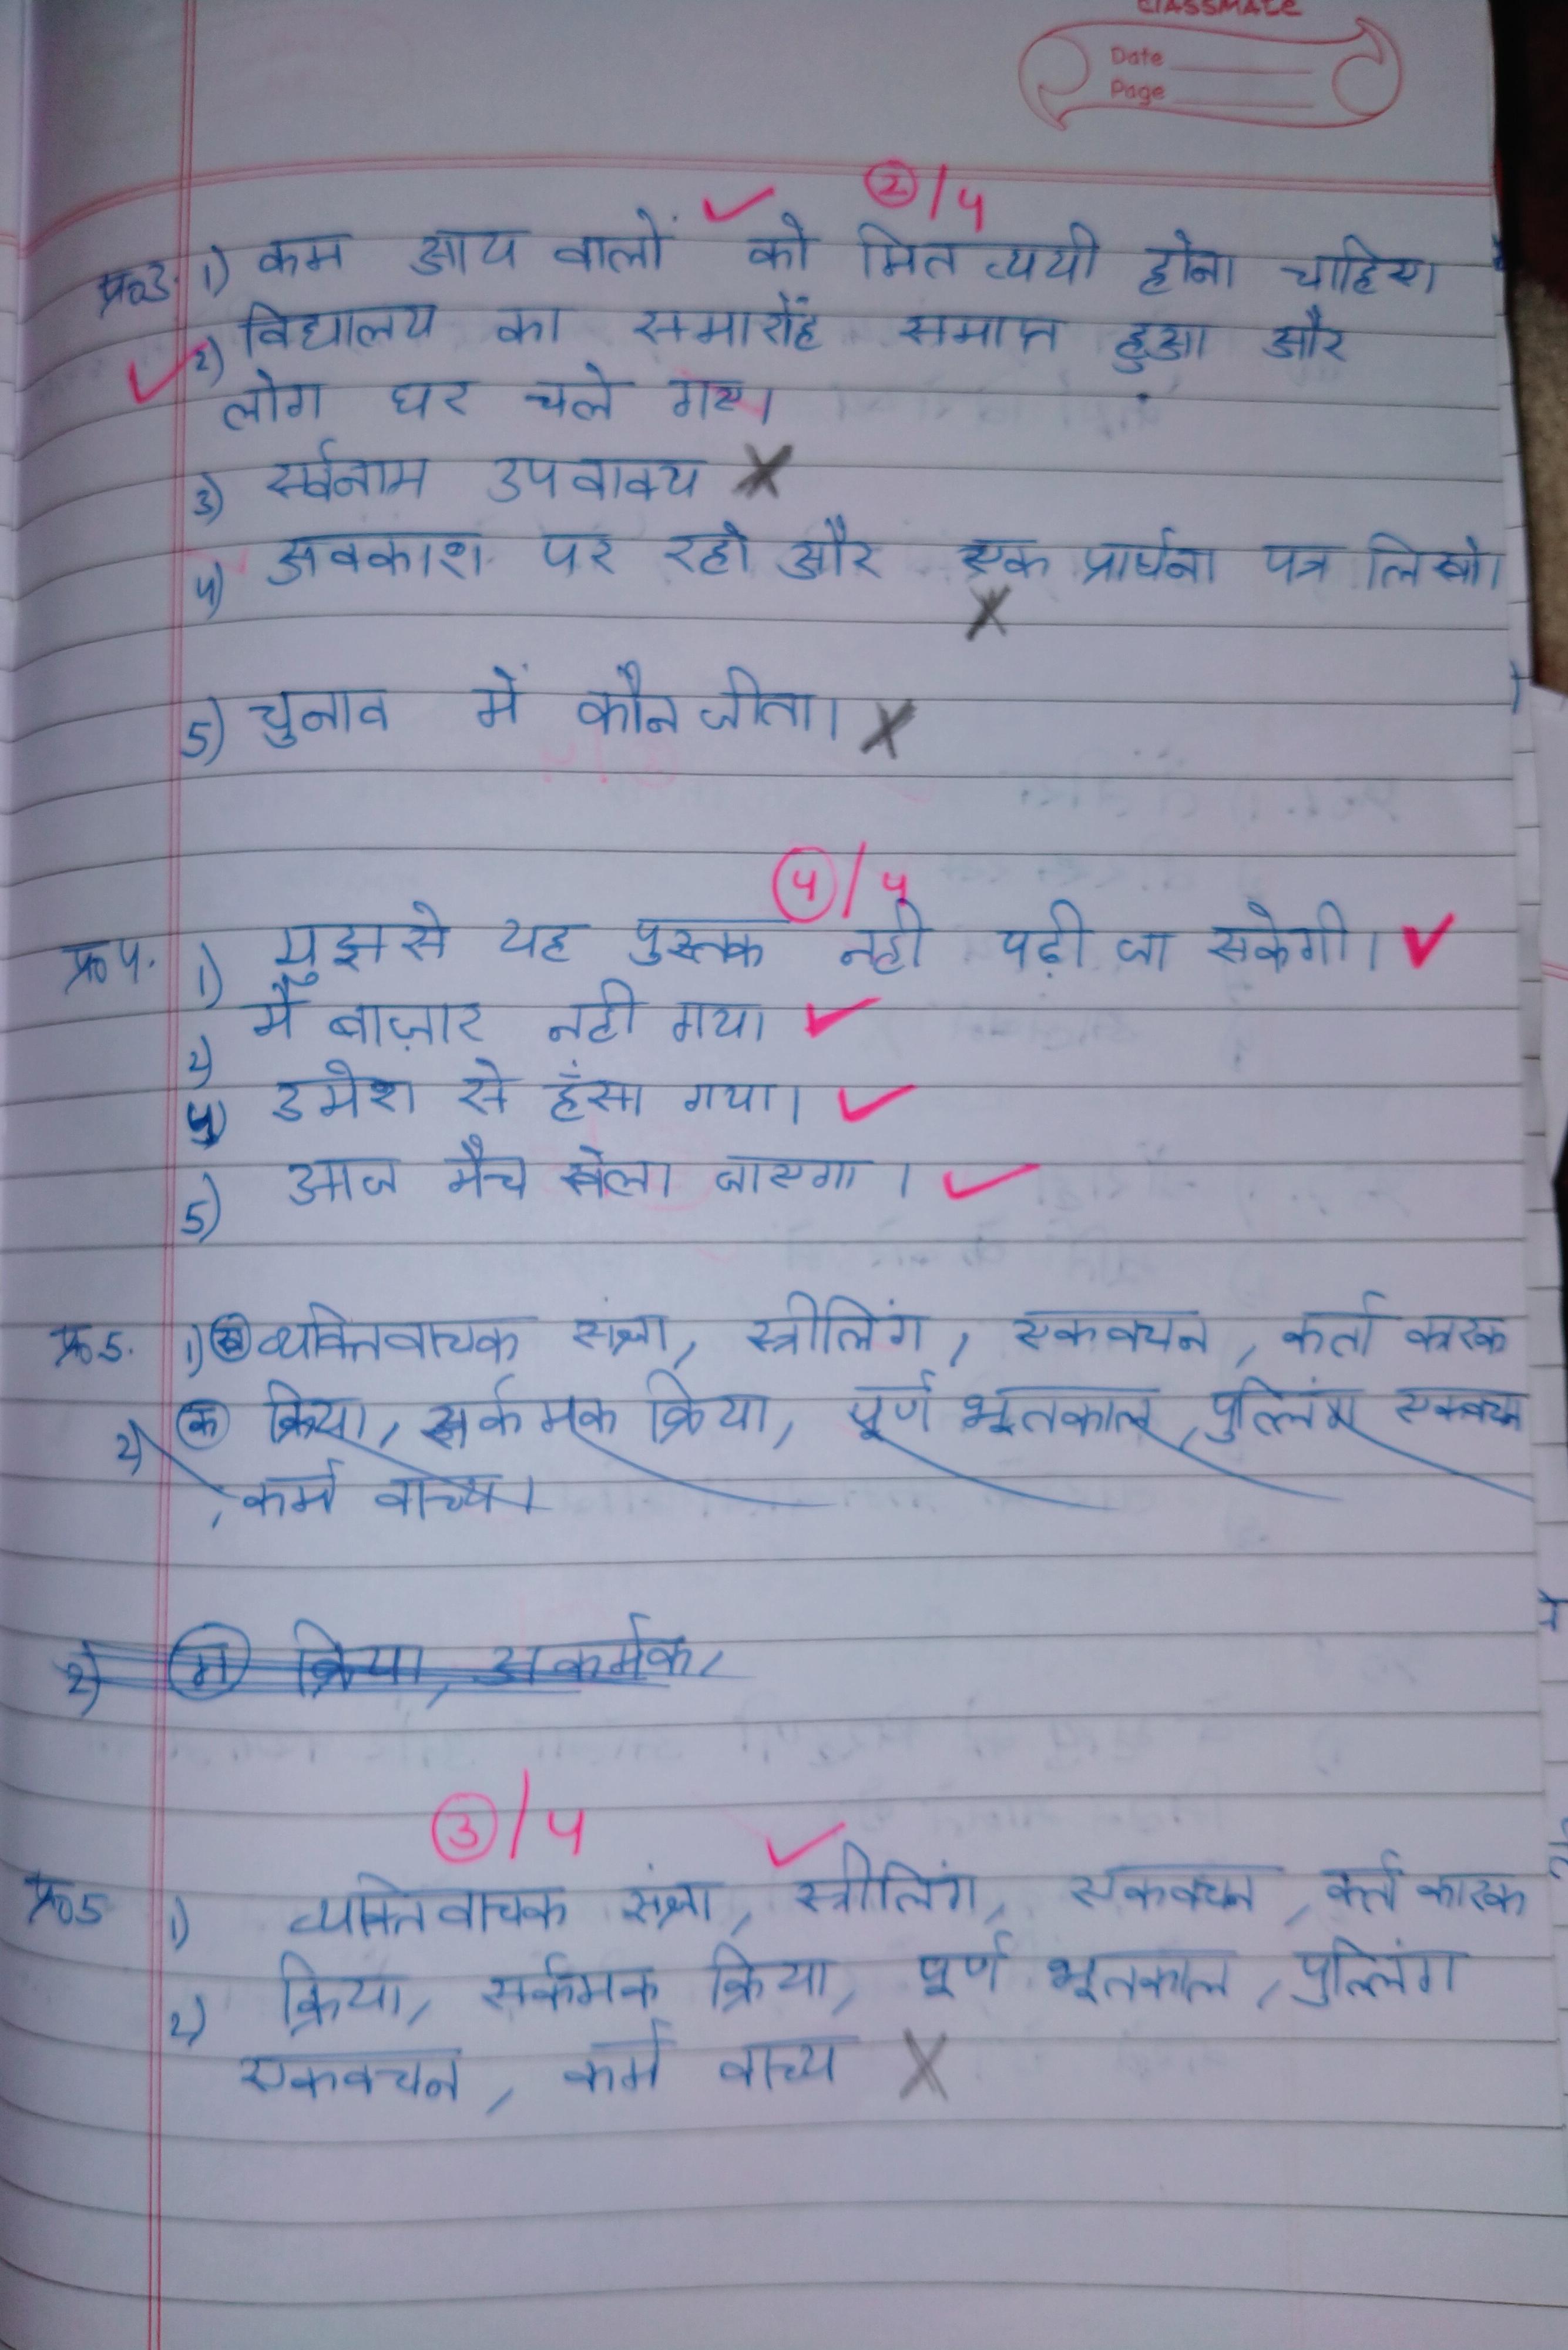 classmate
Date
Page
②/4
प्र०3. 1) कम आय वालों को मितव्ययी होना चाहिए।
2) विद्यालय का समारोंह समाप्त हुआ और
लोग घर चले गए।
3) र्स्वनाम उपवाक्य
4) अवकाश पर रहो और एक प्रार्थना पत्र लिखो।
5) चुनाव में कौन जीता।
④/4
प्र०4. 1) मुझसे यह पुस्तक नही पढ़ी जा सकेगी।
2) मैं बाज़ार नही गया।
4) उमेश से हँसा गया।
5) आज मैच खेला जाएगा।
प्र०5. 1) व्यक्तिवाचक संज्ञा, स्त्रीलिंग, एकवचन, कर्ता कारक
2) क क्रिया, सर्कमक क्रिया, पूर्ण भूतकाल, पुल्लिंग एकवचन
, कर्म वाच्य।
2) ग क्रिया, अकर्मक,
③/4
प्र०5 1) व्यक्तिवाचक संज्ञा, स्त्रीलिंग, एकवचन, कर्ता कारक
2) क्रिया, सर्कमक क्रिया, पूर्ण भूतकाल, पुल्लिंग
एकवचन, कर्म वाच्य